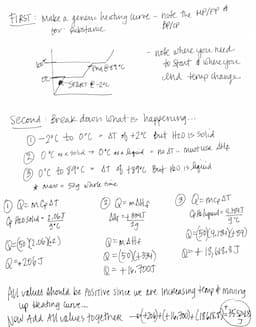 FIRST: Make a generic heating curve - note the MP/FP &
for substance
100°
0°
END @ 89°C
START @ -2°C
- note where you need
to start & where you
end temp change.
Second: Break down what is happening...
① -2°C to 0°C = ΔT of +2°C but H2O is solid
② 0°C as a solid → 0°C as a liquid = no ΔT - must use ΔHf
③ 0°C to 89°C = ΔT of +89°C but H2O is liquid
* mass = 50g whole time
① Q = mCpΔT
Cp H2O solid = 2.06J
g°C
Q=(50)(2.06)(2)
Q=+206J
② Q = mΔHf
ΔHf = +334J
g
Q=mΔHf
Q=(50)(+334)
Q= +16,700J
③ Q=mCpΔT
Cp H2O liquid = 4.184J
g°C
Q=(50)(4.184)(+89)
Q=+18,618.8J
All values should be positive since we are increasing temp & moving
up heating curve...
Now Add All values together → (+206)+(+16,700)+(18618.8)=
J